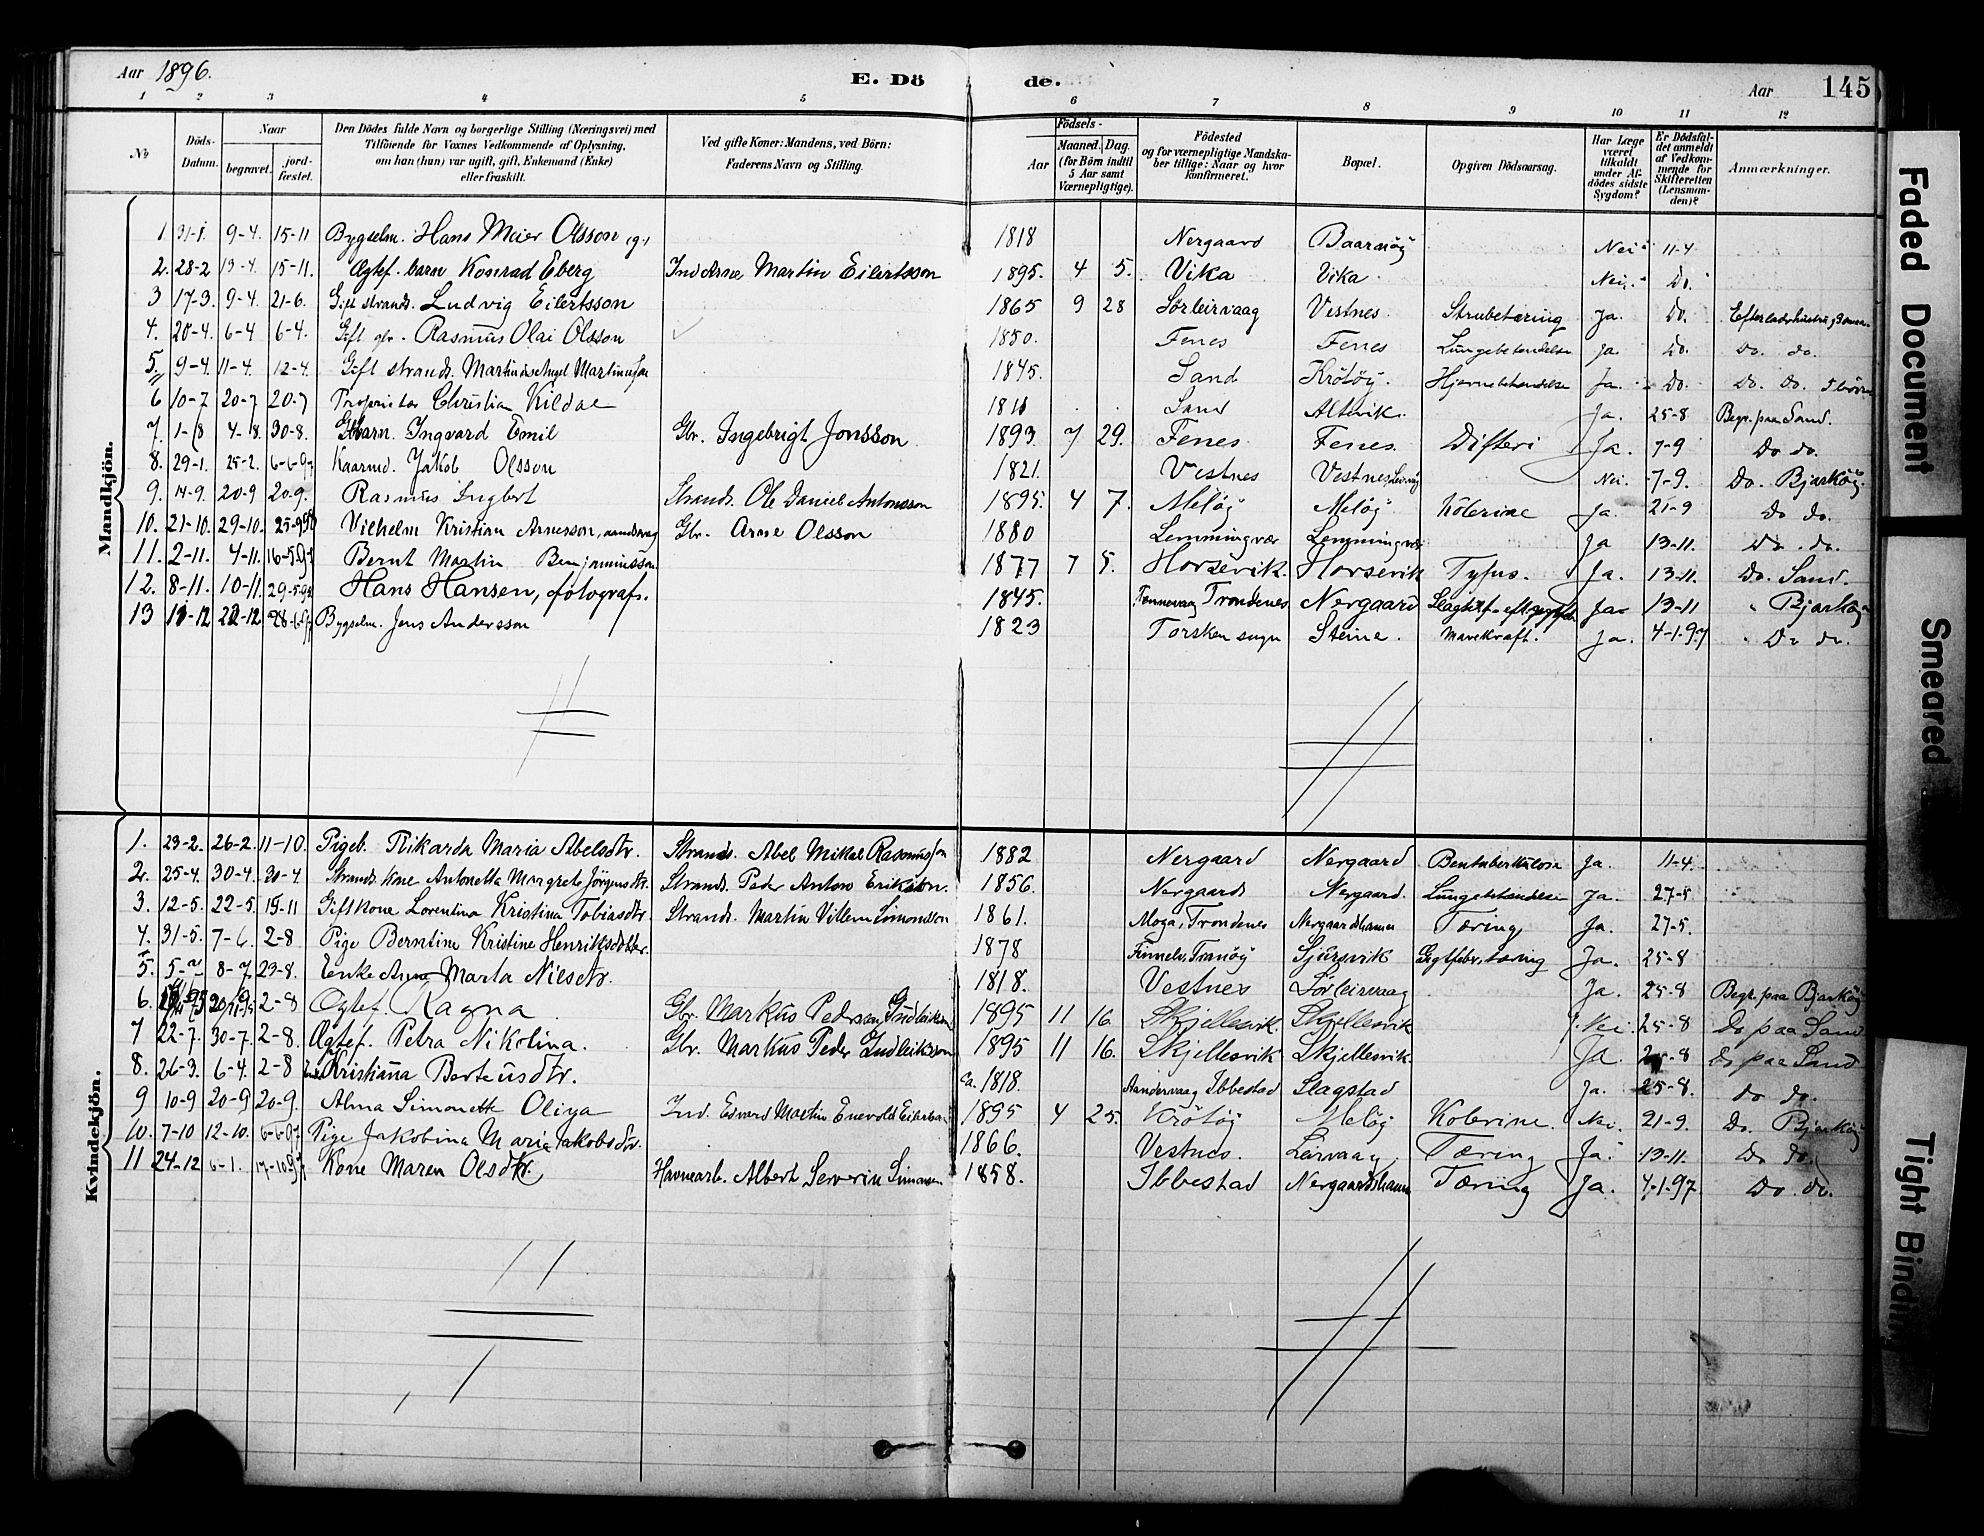 Aar 1896. E. Döde. Aar 145
1 2 3 4 5 6 7 8 9 10 11 12
No
Döds-Datum.
Naar
begravet.
jordfæstet.
Den Dödes fulde Navn og borgerlige Stilling (Næringsvei) med
Tilföiende for Voxnes Vedkommende af Oplysning,
om han (hun) var ugift, gift, Enkemand (Enke)
eller fraskilt.
Ved gifte Koner: Mandens, ved Börn:
Faderens Navn og Stilling.
Födsels-
Aar
Maaned. Dag.
(for Börn indtil
5 Aar samt
Værnepligtige).
Födested
og for værnepligtige Mandskaber tillige: Naar og hvor
konfirmeret.
Bopæl.
Opgiven Dödsaarsag.
Har Læge
været
tilkaldt
under Afdödes sidste
Sygdom?
Er Dödsfaldet anmeldt
af Vedkommende for
Skifteretten
(Lensmanden)?
Anmærkninger.
Mandkjön.
1. 31-1. 9-4. 15-11 Bygselm. Hans Meier Olsson 1818 Nergaard Baarnöy Nei 11-4
2. 28-2 13-4. 15-11. Ægtef. barn Konrad Eberg Martin Eilertsson 1895. 4 5. Vika Vika Nei. Do.
3 17-3. 9-4. 21-6. Gift strands. Ludvig Eilertsson 1865 9 28 Sörleirvaag Vestnes. Strubetæring Ja. Do.
4. 20-4. 6-4 6-4. Gift Rasmus Olai Olsson 1850. Fenes Fenes Lungebetændelse Ja. Do. do. do.
5. 9-4. 11-4. 12-4. Gift strands. 1845. Sand Krötöy. Hjernebetændelse Ja. Do. Do. Do. 5 börn
6 10-7 20-7 20-7 Proprietær Christian Kildal Sand Altevik. Ja. 25-8 Begr. paa Sand.
7. 1-8 4-8. 30-8. Ingvard Emil Gbr. Ingebrigt Jonsson 1893. 7 29. Fenes Fenes Difteri Ja. 7-9 Do do.
8. 29-1. 25-2. Kaarmd. Jakob Olsson 1821. Vestnes Vestnes Nei. 7-9. Do. Bjarköy.
9. 14-9. 20-9 20-9. Rasmus Ingbert Strands. Ole Daniel Antonsson 1895. 4 7. Melöy Melöy Kolerine Ja. 21-9 Do do.
10. 21-10. 29-10. Vilhelm Kristian Arnesson, Gbr. Arne Olsson 1880 Lemmingvær Lemmingvær Ja 13-11. Do. do.
11. 2-11. 4-11. Bernt Martin Benjaminsson. 1877 7 5. Horsevik. Horsevik Tyfus. Ja. 13-11. Do. Sand.
12. 8-11. 10-11. Hans Hansen, fotograf. 1845. Trondenes Nergaard Ja 13-11 " Bjarköy
13 22-12 Bygselm. Jens Andersson 1823 Torsken sogn Steine. Mavekræft. Ja. 4-1.97 " Do do.
Kvindekjön.
1. 23-2. 26-2. 11-10. Pigeb. Rikarda Maria Abelsdtr. Strands. Abel Mikal Rasmusson 1882 Nergaard Nergaard Bentuberkulose Ja. 11-4.
2. 25-4. 30-4. 30-4 Strands. kone Antonetta Margrete Jörgensdtr. Strands. Peder Anton Erikson. 1856. Nergaard Nergaard. Lungebetændelse Ja. 27-5
3. 12-5. 22-5. 15-11 Gift kone Lorentina Kristina Tobiasdtr. Strands. Martin Villem Simonsson 1861. Moga, Trondenes Nergaardshamn Tæring Ja. 27-5.
4. 31-5. 7-6. 2-8 Pige Berntine Kristine Henriksdatter. 1878 Finnelv, Tranöy Sjursvik tæring Ja. 25-8
5. 5-7 8-7. 23-8. Enke Marta Nilsdtr. 1818. Vestnes Sörleirvaag Ja. 25-8 Begr. paa Bjarköy
6. 2-8 Ægtef. Ragna Gbr. Markus Pederson 1895 11 16. Skjellesvik. Skjellesvik Nei 25-8 Do paa Sand
7 22-7. 30-7. 2-8. Ægtef. Petra Nikolina. Gbr. Markus Peder 1895 11 16. Skjellesvik Skjellesvik. Ja 25-8 do paa Sand
8. 26-3. 6-4. 2-8 Kristiana Berteusdtr. ca. 1818. Ibbestad Slagstad Ja. 25-8. do do.
9 10-9 20-9 20-9. Alma Simonette Oliva Ind. Edvard Martin Enevold 1895 4 25. Krötöy Melöy Kolerine. Nei. 21-9. Do. Bjarköy
10. 7-10 12-10. Pige Jakobina Maria Jakobsdtr. 1866. Vestnes. Leirvaag Tæring Ja. 13-11. Do do.
11 24-12 6-1. Kone Maren Olsdtr. Havnearb. Albert Severin Simonsen 1858. Ibbestad Nergaardshamn Tæring Ja. 4-1-97. Do. do.
Faded Document
Smeared
Tight Binding